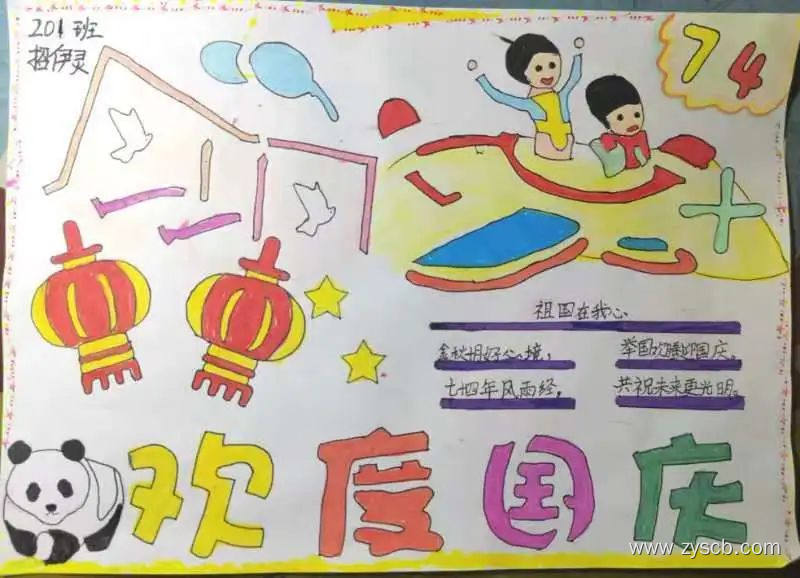 201班
招伊灵
74
祖国在我心
金秋月好心境，
举国欢腾迎国庆。
七四年风雨经，
共祝未来更光明。
欢度国庆
www.zyscb.com